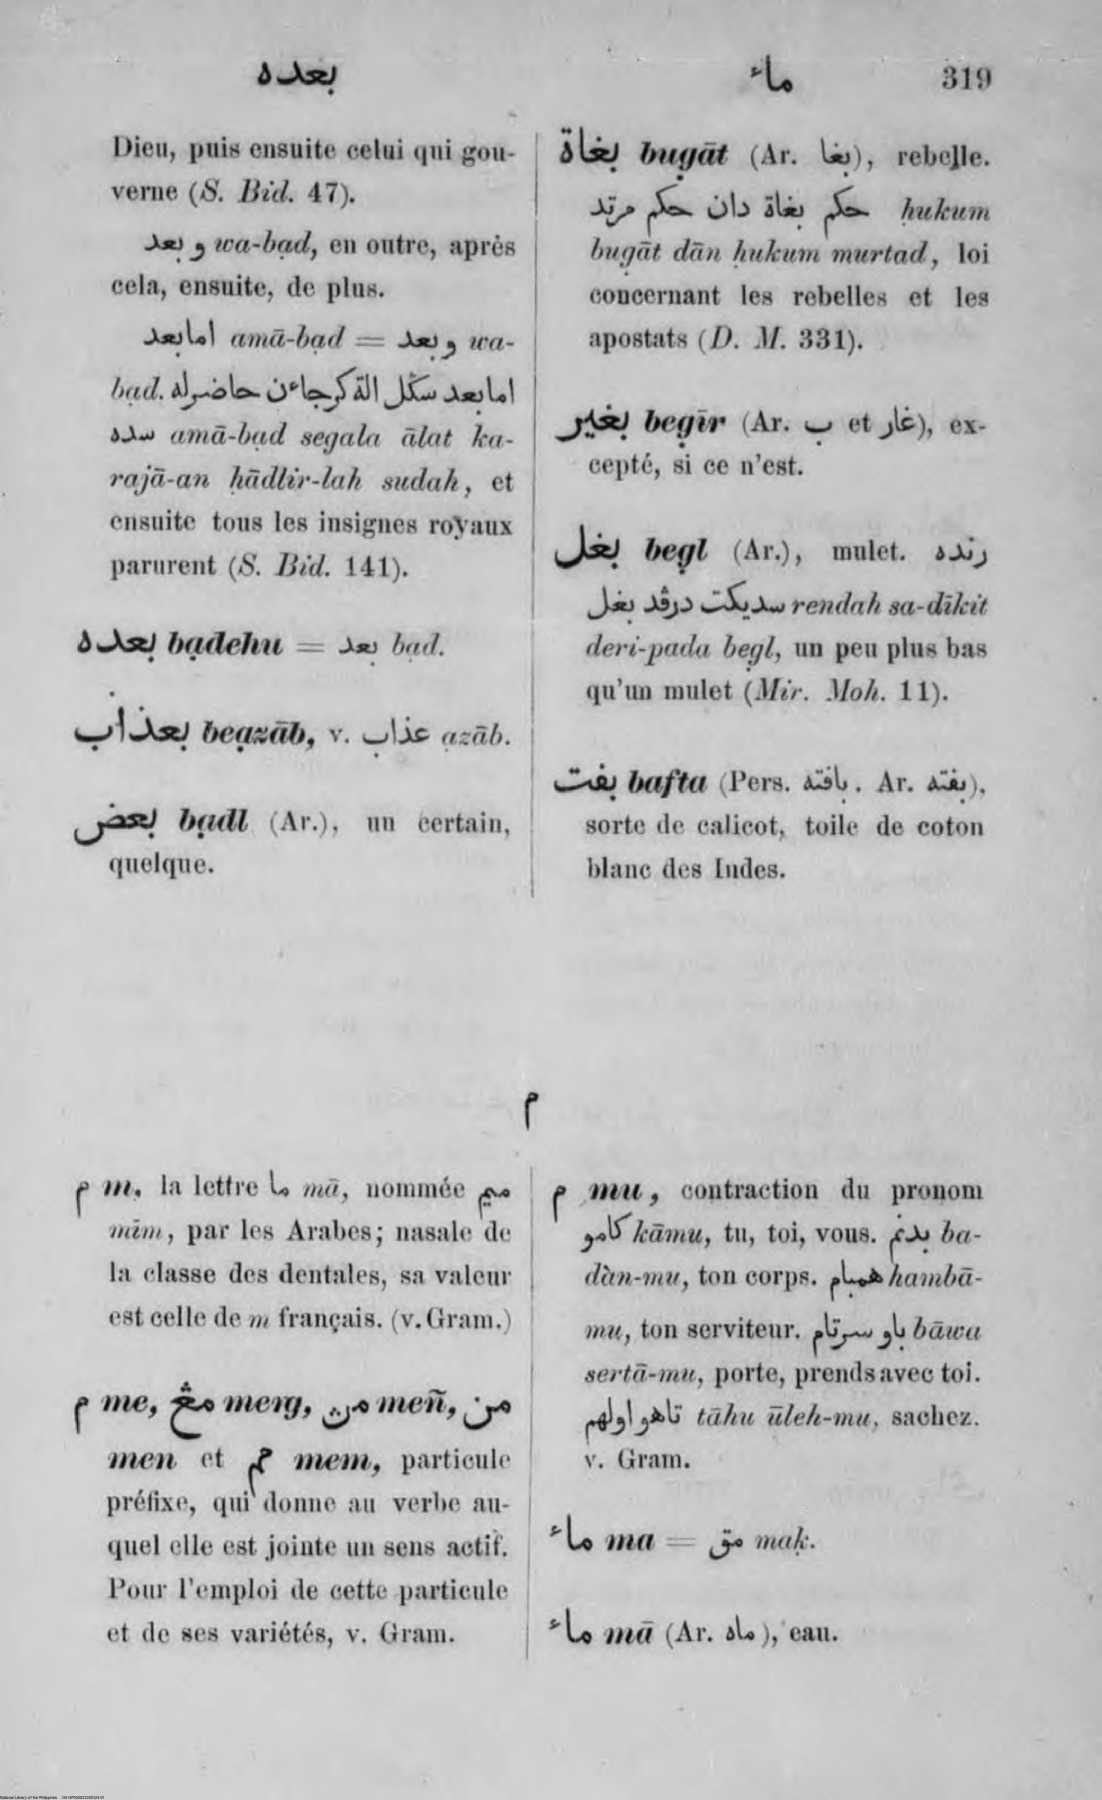 بعده
ماء
319
Dieu, puis ensuite celui qui gou-
verne (S. Bid. 47).
و بعد wa-bạd, en outre, après
cela, ensuite, de plus.
امابعد amā-bạd = و بعد wa-
bạd. امابعد سڬل الة كرجاءن حاضرله
سده amā-bạd segala ālat ka-
rajā-an ḥādlir-lah sudah, et
ensuite tous les insignes royaux
parurent (S. Bid. 141).
بعده bạdehu = بعد bạd.
بعذاب beạzāb, v. عذاب ạzāb.
بعض bạdl (Ar.), un certain,
quelque.
بغاة bug̣āt (Ar. بغا), rebelle.
حكم بغاة دان حكم مرتد ḥukum
bug̣āt dān ḥukum murtad, loi
concernant les rebelles et les
apostats (D. M. 331).
بغير beg̣īr (Ar. ب et غار), ex-
cepté, si ce n'est.
بغل beg̣l (Ar.), mulet. رنده
سديكت درڤد بغل rendah sa-dīkit
deri-pada beg̣l, un peu plus bas
qu'un mulet (Mir. Moh. 11).
بفت bafta (Pers. بافته. Ar. بفته),
sorte de calicot, toile de coton
blanc des Indes.
م
م m, la lettre ما mā, nommée ميم
mīm, par les Arabes; nasale de
la classe des dentales, sa valeur
est celle de m français. (v. Gram.)
م me, مڠ meng, من meñ, من
men et مم mem, particule
préfixe, qui donne au verbe au-
quel elle est jointe un sens actif.
Pour l'emploi de cette particule
et de ses variétés, v. Gram.
م mu, contraction du pronom
كامو kāmu, tu, toi, vous. بدنم ba-
dàn-mu, ton corps. همبام hambā-
mu, ton serviteur. باو سرتام bāwa
sertā-mu, porte, prends avec toi.
تاهو اولهم tāhu ūleh-mu, sachez.
v. Gram.
ماء ma = مق maḳ.
ماء mā (Ar. ماه), eau.